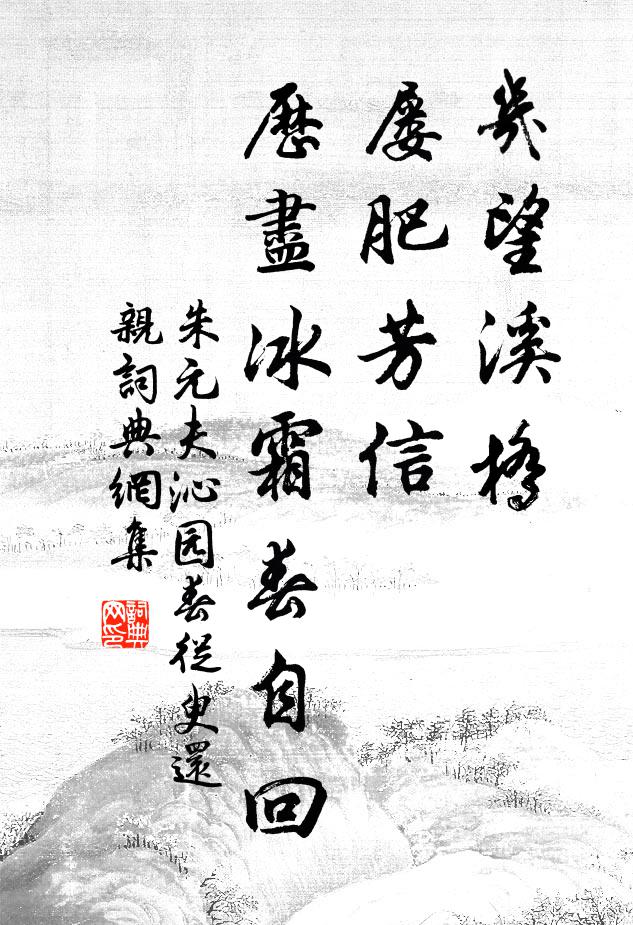 幾望溪橋
屡肥芳信
歷盡冰霜春自回
朱元夫沁园春從叟還
親詞典網集
詞典网印